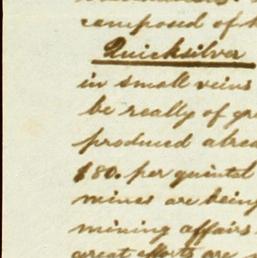 composed of
Quicksilver
in small veins
be really of gr
produced alrea
$80. per quintal
mines are being
mining affairs
great efforts are